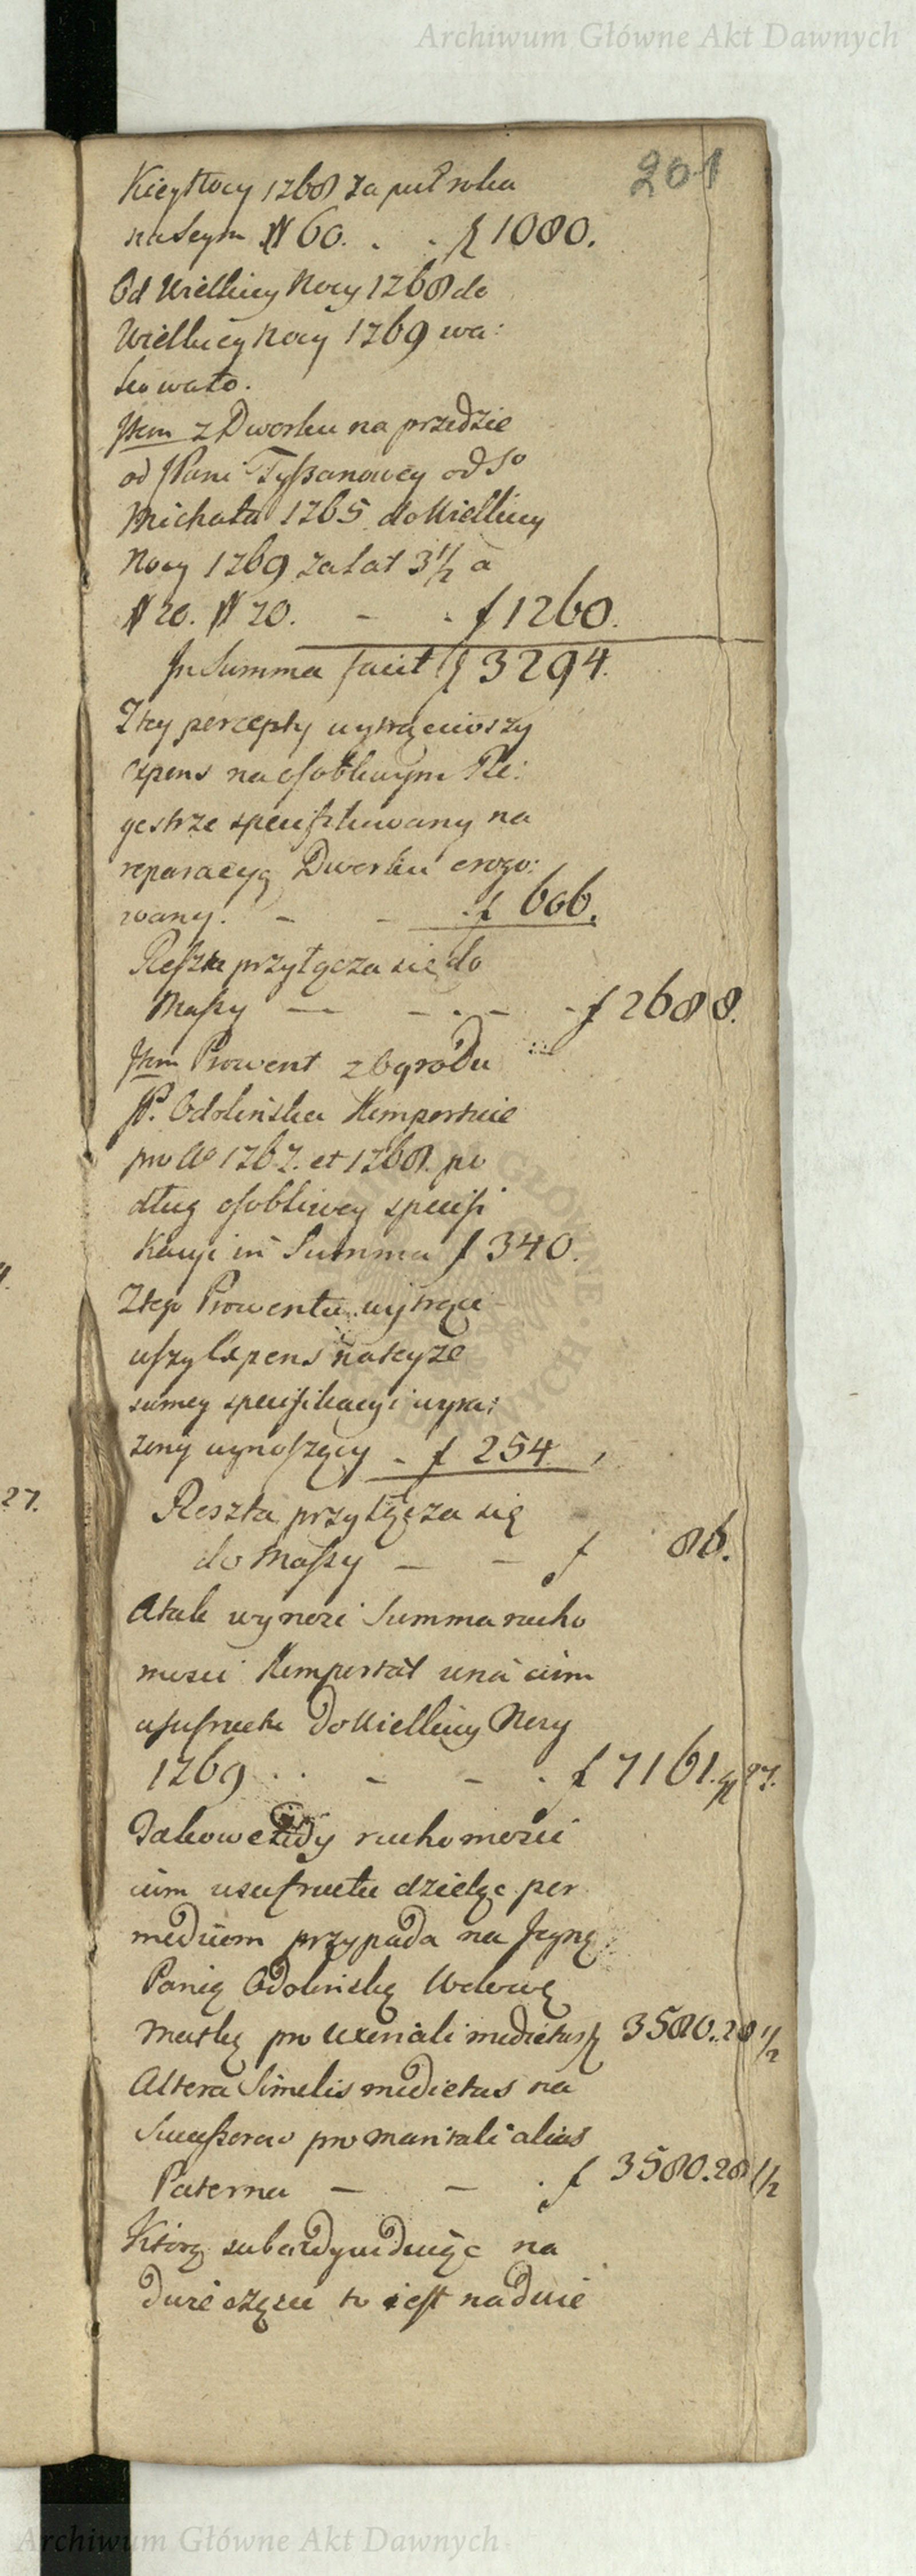 Archiwum Główne Akt Dawnych
201
KieyNocy 1768 za puł roka
na Seym # 60. . . f 1080.
Od Wielkiey Nocy 1768 do
Wielkiey Nocy 1769 wa:
kowało.
Item z Dworku na przedzie
od JPani Tyszanowey od So
Michała 1765 do Wielkiey
Nocy 1769 za lat 3 1/2 a
# 20. # 20. - . f 1260.
In Summa facit f 3294.
Z tey percepty wytrąciwszy
expens na osobliwym Re:
gestrze specifikowany na
reparacyą Dworku erogo:
wany. - - f 606.
Reszta przyłącza się do
Massy — - . - . f 2688.
Item Prowent z Ogrodu
JP. Odolińska Komportuie
pro Ao 1767. et 1768. po
dług osobliwey specifi
kacyi in Summa f 340.
Z tego Prowentu wytrąci
wszy Expens na teyże
samey specifikacyi wyra:
żony wynoszący - f 254.
Reszta przyłącza się
do Massy — - f 86.
A tak wynosi Summa rucho
mosci Komportat una cum
usufructu do Wielkiey Nocy
1769 . . - - . f 7161. gr 27.
Takowe tedy ruchomosci
cum usufructu dzieląc per
medium przypada na Jeynę
Panią Odolińską Wdowę
Matkę pro uxoriali medietas f 3580. 28 1/2
Altera Similis medietas na
Sucessorow pro maritali alias
Paterna — - . f 3580. 28 1/2
Którą subdywiduiąc na
dwie częsci to iest na dwie
27.
Archiwum Główne Akt Dawnych